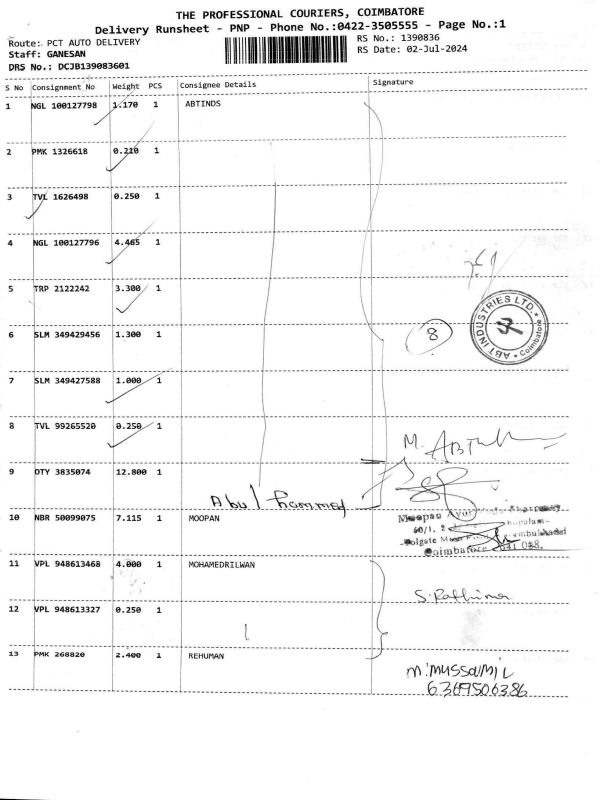 THE PROFESSIONAL COURIERS, COIMBATORE
Delivery Runsheet - PNP - Phone No.:0422-3505555 - Page No.:1
Route: PCT AUTO DELIVERY
RS No.: 1390836
Staff: GANESAN
RS Date: 02-Jul-2024
DRS No.: DCJB139083601
S No Consignment No Weight PCS Consignee Details Signature
1 NGL 100127798 1.170 1 ABTINDS
2 PMK 1326618 0.210 1
3 TVL 1626498 0.250 1
4 NGL 100127796 4.465 1
5 TRP 2122242 3.300 1
ABT INDUSTRIES LTD. * Coimbatore *
6 SLM 349429456 1.300 1
8
7 SLM 349427588 1.000 1
8 TVL 99265520 0.250 1
9 DTY 3835074 12.800 1
10 NBR 50099075 7.115 1 MOOPAN
Moopan
60/1,
Coimbatore
11 VPL 948613468 4.000 1 MOHAMEDRILWAN
S. Rathina
12 VPL 948613327 0.250 1
13 PMK 268820 2.400 1 REHUMAN
6369506386